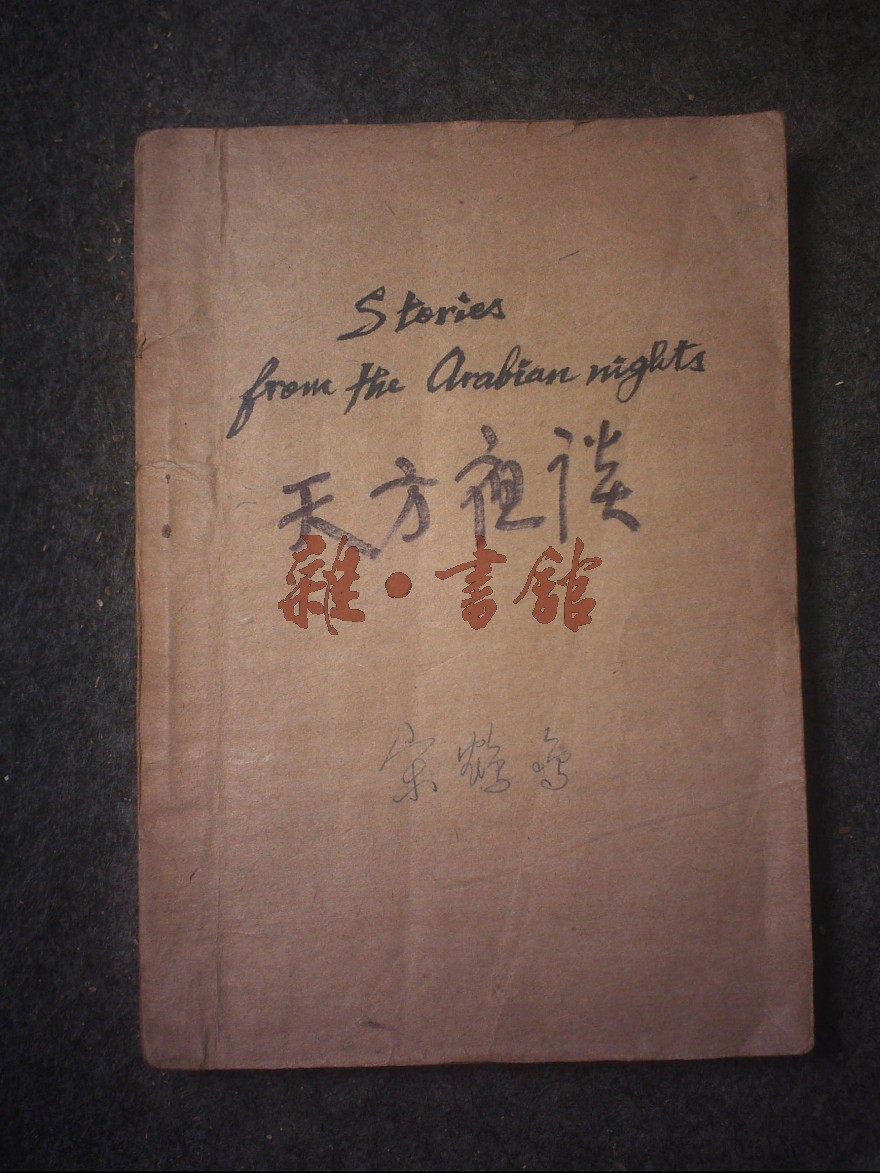 Stories
from the Arabian nights
天方夜谈
雜·書館
宋鹤鸣